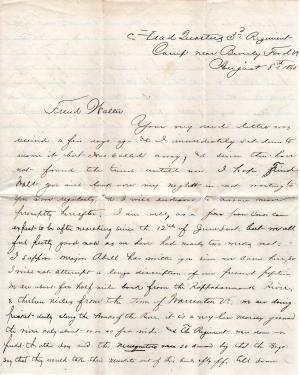 Head Quarters 3d Regiment
Camp near Beverly Ford Va
August 8th
Friend Walter
Your very kind letter was
received a few days ago & I immediately sat down to
answer it but was called away, & since then have
not found the time until now. I hope Friend
Walt you will
you more regularly, & I will endeavor to answer more
promptly hereafter. I am well, as a
expect to be after marching since the 12th of June last, but we all
feel pretty good as we have had nearly two weeks rest.
I suppose Major Abell has written you since we came here, so
I will not attempt a long description of our present position
we are about one half mile back from the Rappahannock River,
& twelve miles from the Town of Warrenton Va. we are doing
picket duty along the Bank of the River. it is a very low marshy ground
the river only about so wide. & The Regiment was down on
picket the other day and the mosquitoes were so dense the Boys
say that they would take their